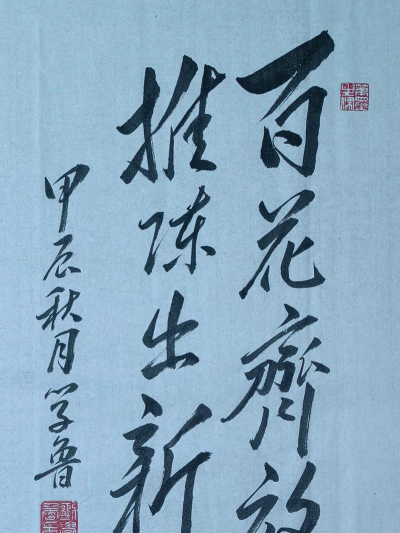 百花齊放
推陳出新
甲辰秋月学魯